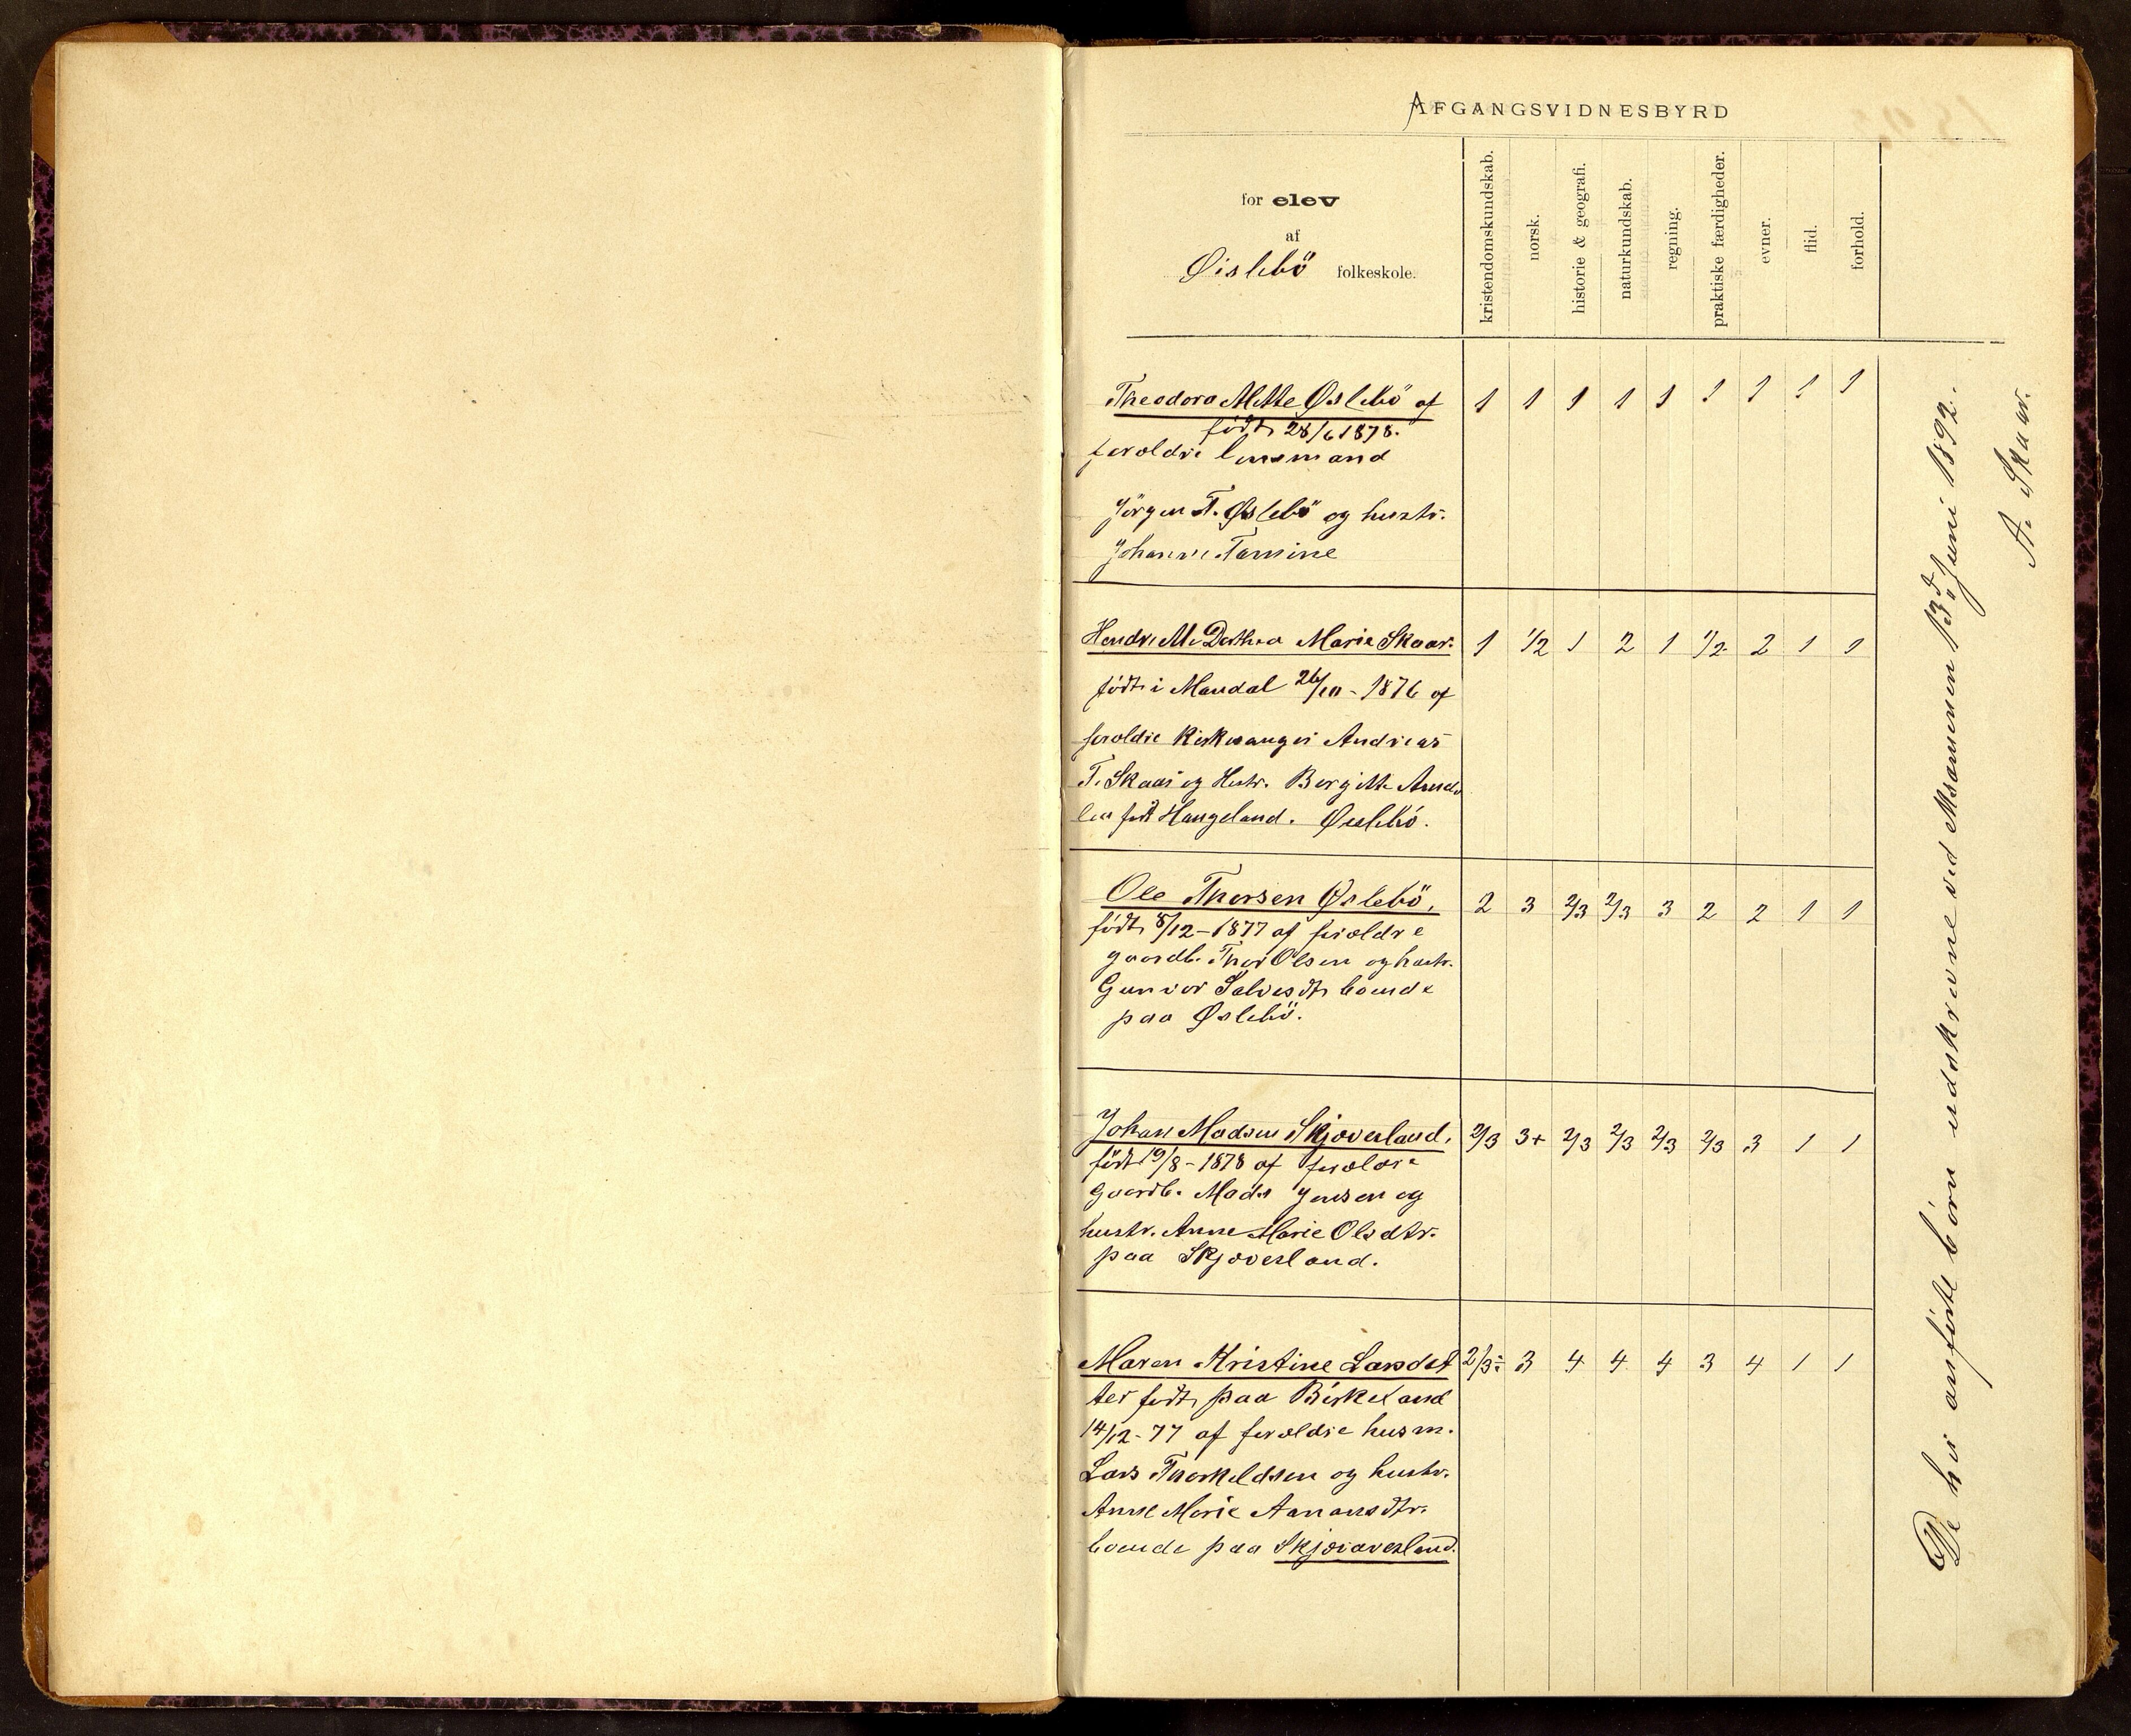 AFGANGSVIDNESBYRD
for elev
af
Øislebö folkeskole.
kristendomskundskab.
norsk.
historie & geografi.
naturkundskab.
regning.
praktiske færdigheder.
evner.
flid.
forhold.
Theodora Mette Øslebö af 1 1 1 1 1 1 1 1 1
født 28/6 1878.
foræoldre lensmand
Jörgen T. Øslebö og hustr.
Johanne Tomine
Dorthea Marie Skaar. 1 1/2 1 2 1 1/2 2 1 1
födt i Mandal 26/10 - 1876 af
foræoldre Kirkesanger Andreas
T. Skaar og Hustr. Bergitte
født Haugeland. Øislebö.
Ole Thorsen Øslebö, 2 3 2/3 2/3 3 2 2 1 1
födt 8/12 - 1877 af foræoldre
gaardb. Thor Olsen og hustr.
Gunvor Salvesdtr boende
paa Øslebö.
Johan Madsen Skjøverland, 2/3 3+ 2/3 2/3 2/3 2/3 3 1 1
født 19/8 - 1878 af foræoldre
Gaardb. Mads Jensen og
hustr. Anne Marie Olsdtr.
paa Skjøverland.
Maren Kristine Larsdat 2/3÷ 3 4 4 4 3 4 1 1
ter født paa Birkeland
14/12 - 77 af foræoldre husm.
Lars Thorkeldsen og hustr.
Anne Marie Aanansdtr.
boende paa Skjøiaverland.
De her anförte börn udskrevne ved Eksamenen 13d Juni 1892.
A. Skaar.